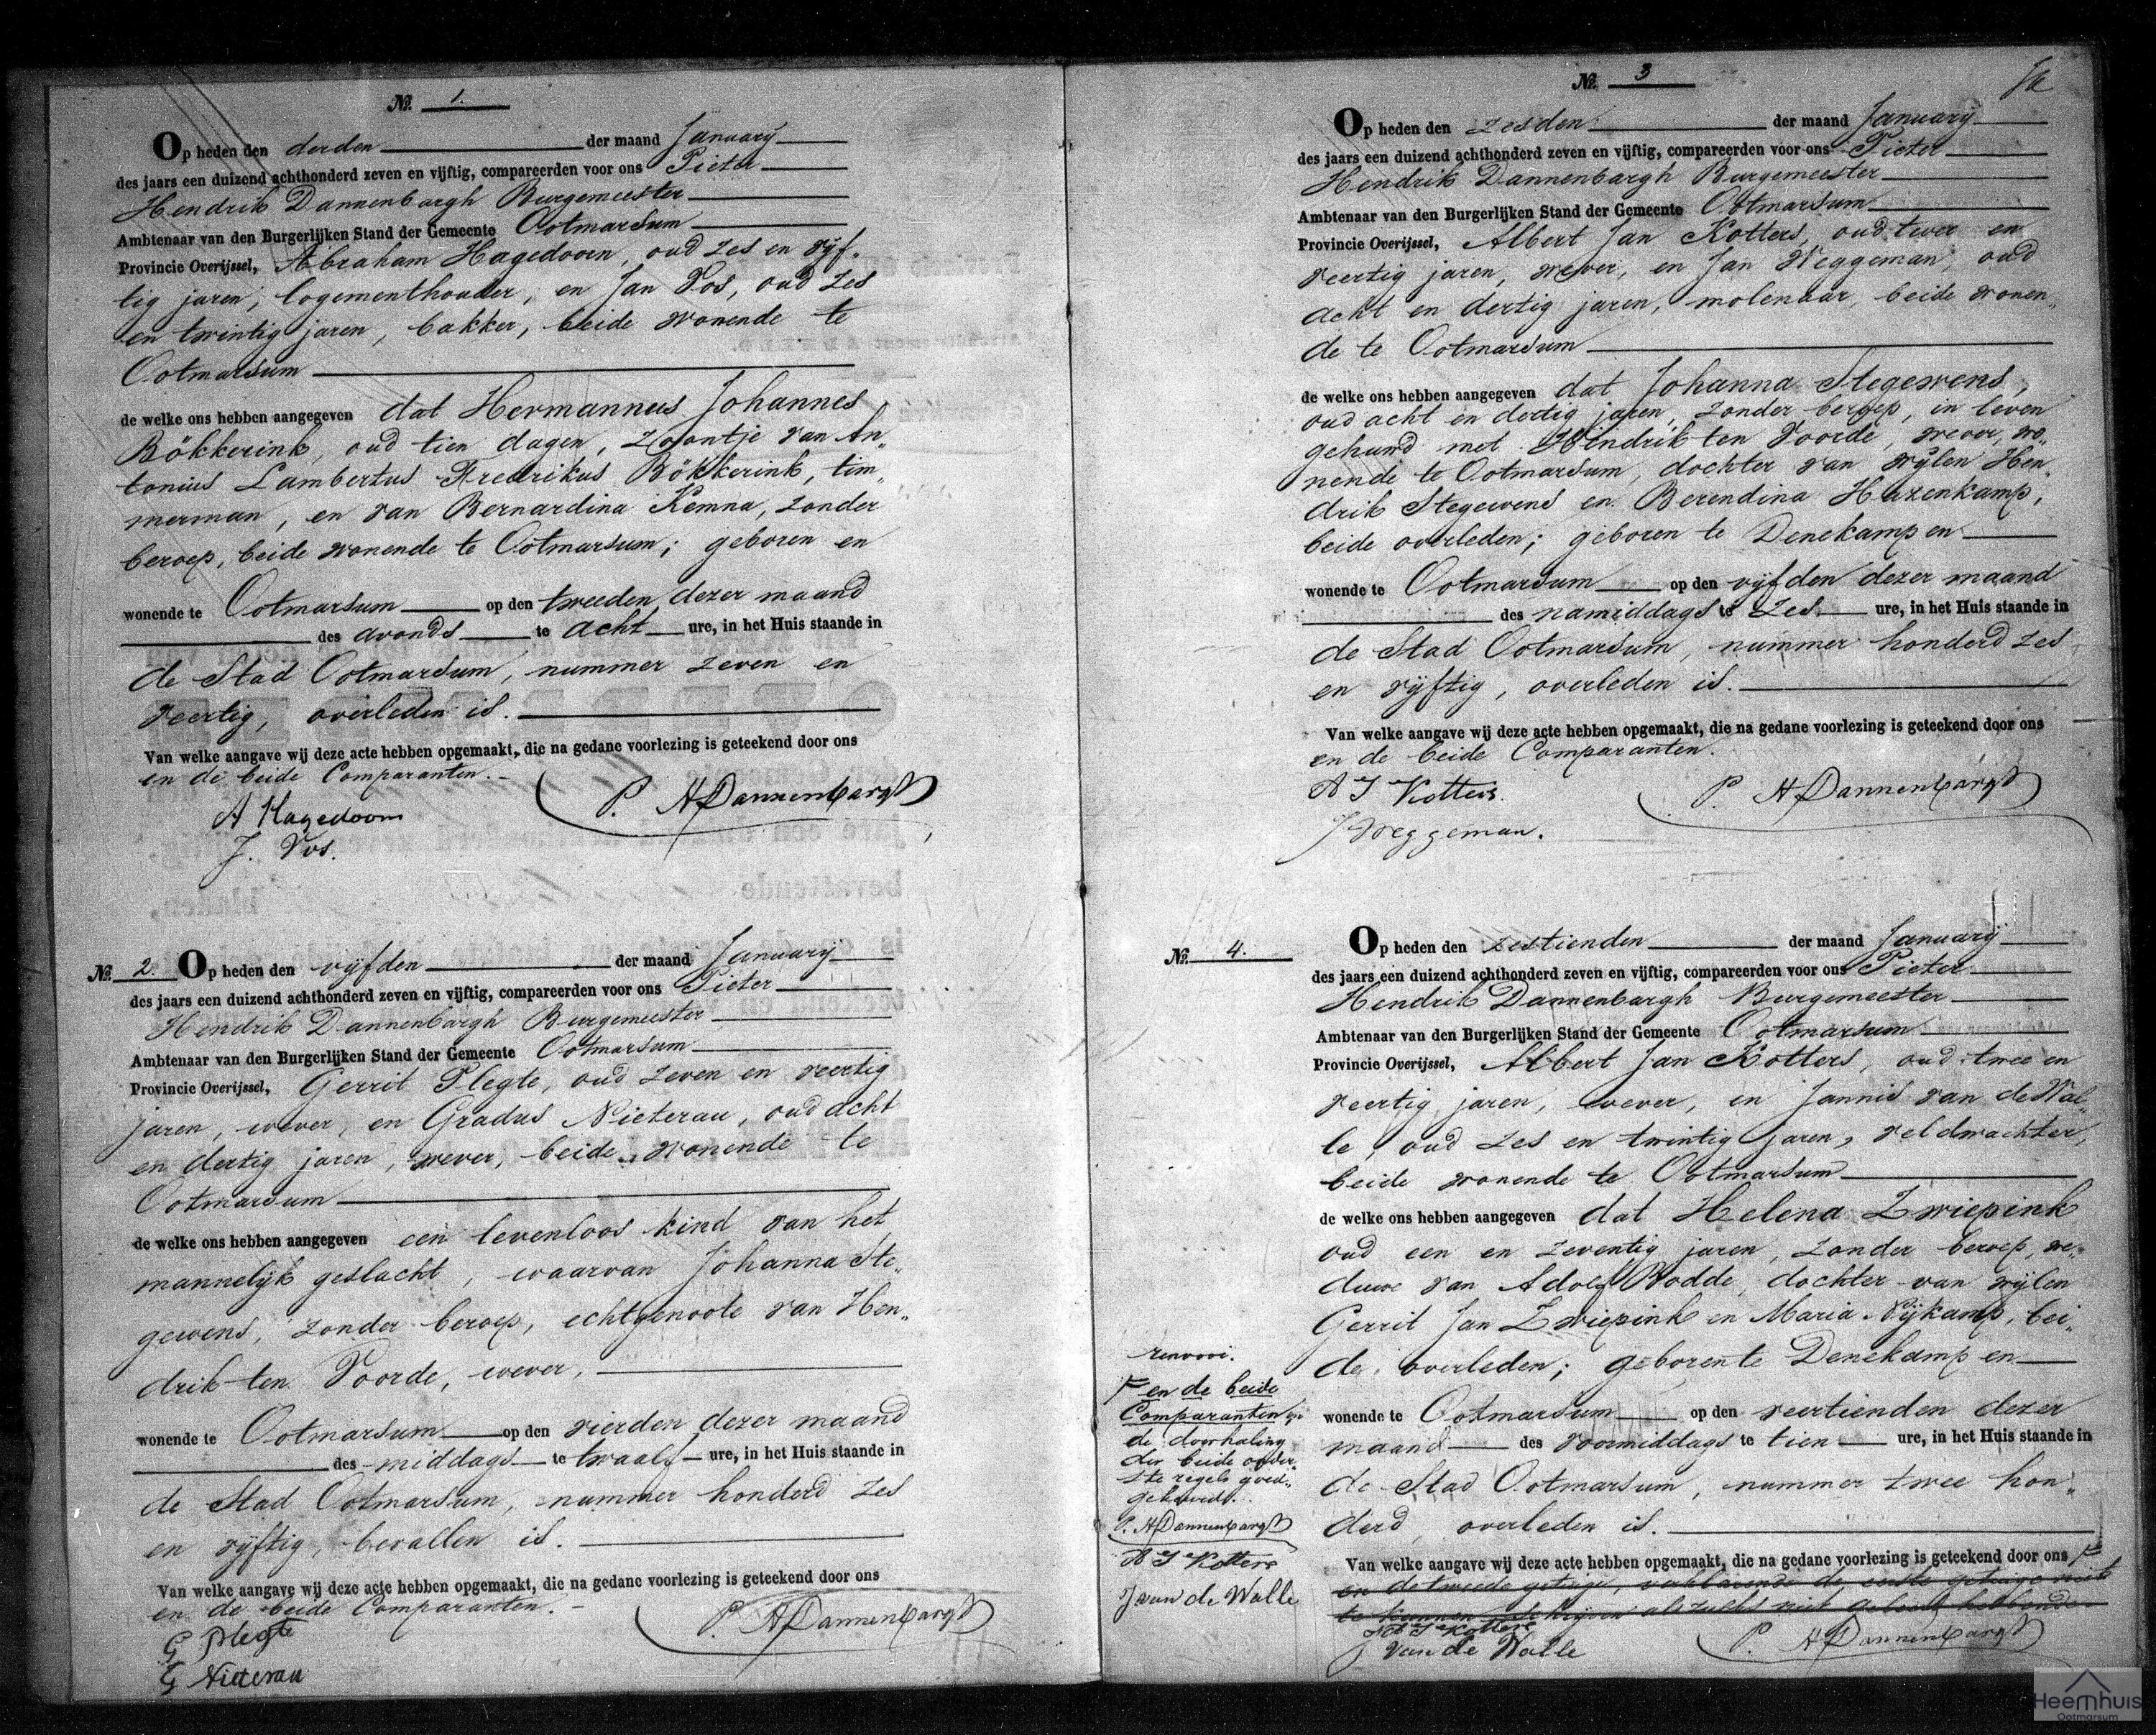 No. 1.
Op heden den derden der maand Januarij
des jaars een duizend achthonderd zeven en vijftig, compareerden voor ons Pieter
Hendrik Dannenbargh Burgemeester
Ambtenaar van den Burgerlijken Stand der Gemeente Ootmarsum
Provincie Overijssel, Abraham Hagedoorn, oud zes en vijf„
tig jaren, logementhouder, en Jan Vos, oud zes
en twintig jaren, bakker, beide wonende te
Ootmarsum
de welke ons hebben aangegeven dat Hermannus Johannes
Bökkerink, oud tien dagen, zoontje van An„
tonius Lambertus Fredrikus Bökkerink, tim„
merman, en van Bernardina Kemna, zonder
beroep, beide wonende te Ootmarsum; geboren en
wonende te Ootmarsum op den tweeden dezer maand
des avonds te acht ure, in het Huis staande in
de Stad Ootmarsum, nummer zeven en
veertig, overleden is.
Van welke aangave wij deze acte hebben opgemaakt, die na gedane voorlezing is geteekend door ons
en de beide Comparanten.
P. H Dannenbargh
A Hagedoorn
J. Vos.
No. 2. Op heden den vijfden der maand Januarij
des jaars een duizend achthonderd zeven en vijftig, compareerden voor ons Pieter
Hendrik Dannenbargh Burgemeester
Ambtenaar van den Burgerlijken Stand der Gemeente Ootmarsum
Provincie Overijssel, Gerrit Plegte, oud zeven en veertig
jaren, wever, en Gradus Nieterau, oud acht
en dertig jaren, wever, beide wonende te
Ootmarsum
de welke ons hebben aangegeven een levenloos kind van het
mannelijk geslacht, waarvan Johanna Ste„
gewens, zonder beroep, echtgenoote van Hen„
drik ten Voorde, wever,
wonende te Ootmarsum op den vierden dezer maand
des middags te twaalf ure, in het Huis staande in
de Stad Ootmarsum, nummer honderd zes
en vijftig, bevallen is.
Van welke aangave wij deze acte hebben opgemaakt, die na gedane voorlezing is geteekend door ons
en de beide Comparanten.
P. H Dannenbargh
G Plegte
G Nieterau
No. 3
Op heden den zesden der maand Januarij
des jaars een duizend achthonderd zeven en vijftig, compareerden voor ons Pieter
Hendrik Dannenbargh Burgemeester
Ambtenaar van den Burgerlijken Stand der Gemeente Ootmarsum
Provincie Overijssel, Albert Jan Kotters, oud twee en
veertig jaren, wever, en Jan Weggeman, oud
acht en dertig jaren, molenaar, beide wonen„
de te Ootmarsum
de welke ons hebben aangegeven dat Johanna Stegewens,
oud acht en dertig jaren, zonder beroep, in leven
gehuwd met Hindrik ten Voorde, wever, wo„
nende te Ootmarsum, dochter van wijlen Hen„
drik Stegewens en Berendina Hazenkamp,
beide overleden; geboren te Denekamp en
wonende te Ootmarsum op den vijfden dezer maand
des namiddags te zes ure, in het Huis staande in
de Stad Ootmarsum, nummer honderd zes
en vijftig, overleden is.
Van welke aangave wij deze acte hebben opgemaakt, die na gedane voorlezing is geteekend door ons
en de beide Comparanten.
A J Kotters. P. H Dannenbargh
J Weggeman.
No. 4. Op heden den zestienden der maand Januarij
des jaars een duizend achthonderd zeven en vijftig, compareerden voor ons Pieter
Hendrik Dannenbargh Burgemeester
Ambtenaar van den Burgerlijken Stand der Gemeente Ootmarsum
Provincie Overijssel, Albert Jan Kotters, oud twee en
veertig jaren, wever, en Jannis van de Wal„
le, oud zes en twintig jaren, veldwachter,
beide wonende te Ootmarsum
de welke ons hebben aangegeven dat Helena Zwiepink
oud een en zeventig jaren, zonder beroep, we„
duwe van Adolf Bodde, dochter van wijlen
Gerrit Jan Zwiepink en Maria Nijkamp, bei„
de overleden; geboren te Denekamp en
wonende te Ootmarsum op den veertienden dezer
maand des voormiddags te tien ure, in het Huis staande in
de Stad Ootmarsum, nummer twee hon„
derd, overleden is.
Van welke aangave wij deze acte hebben opgemaakt, die na gedane voorlezing is geteekend door ons
en de tweede getuige, verklarende de eerste getuige niet
te kunnen schrijven als zulks niet geleerd hebbende
A J Kotters
J van de Walle P. H Dannenbargh
renvooi.
en de beide
Comparanten en
de doorhaling
der beide onder„
ste regels goed„
gekeurd.
P. H Dannenbargh
A J Kotters
J van de Walle
Heemhuis
Ootmarsum